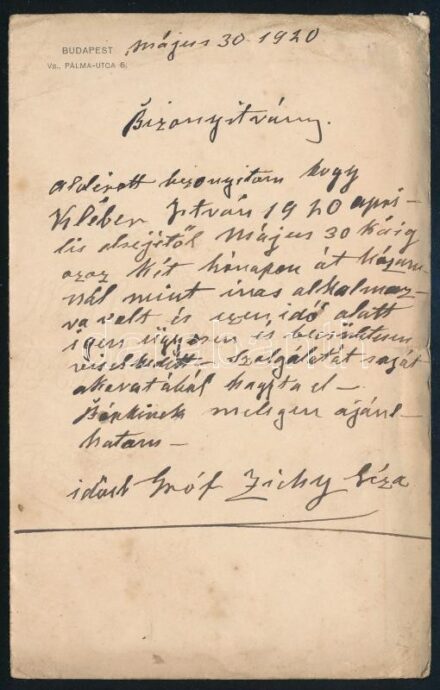 BUDAPEST
VII., PÁLMA-UTCA 6.
Május 30. 1920
Bizonyitvány.
Alólirott bizonyitom hogy
Kléber István 1920 ápri-
lis elsejétől Május 30 káig
azaz két hónapon át házam-
nál mint inas alkalmaz-
va volt és ezen idő alatt
igen ügyesen és becsületesen
viselkedett – Szolgálatát saját
akaratából hagyta el –
Bárkinek melegen ajánl-
hatom –
idősb Gróf Zichy Géza